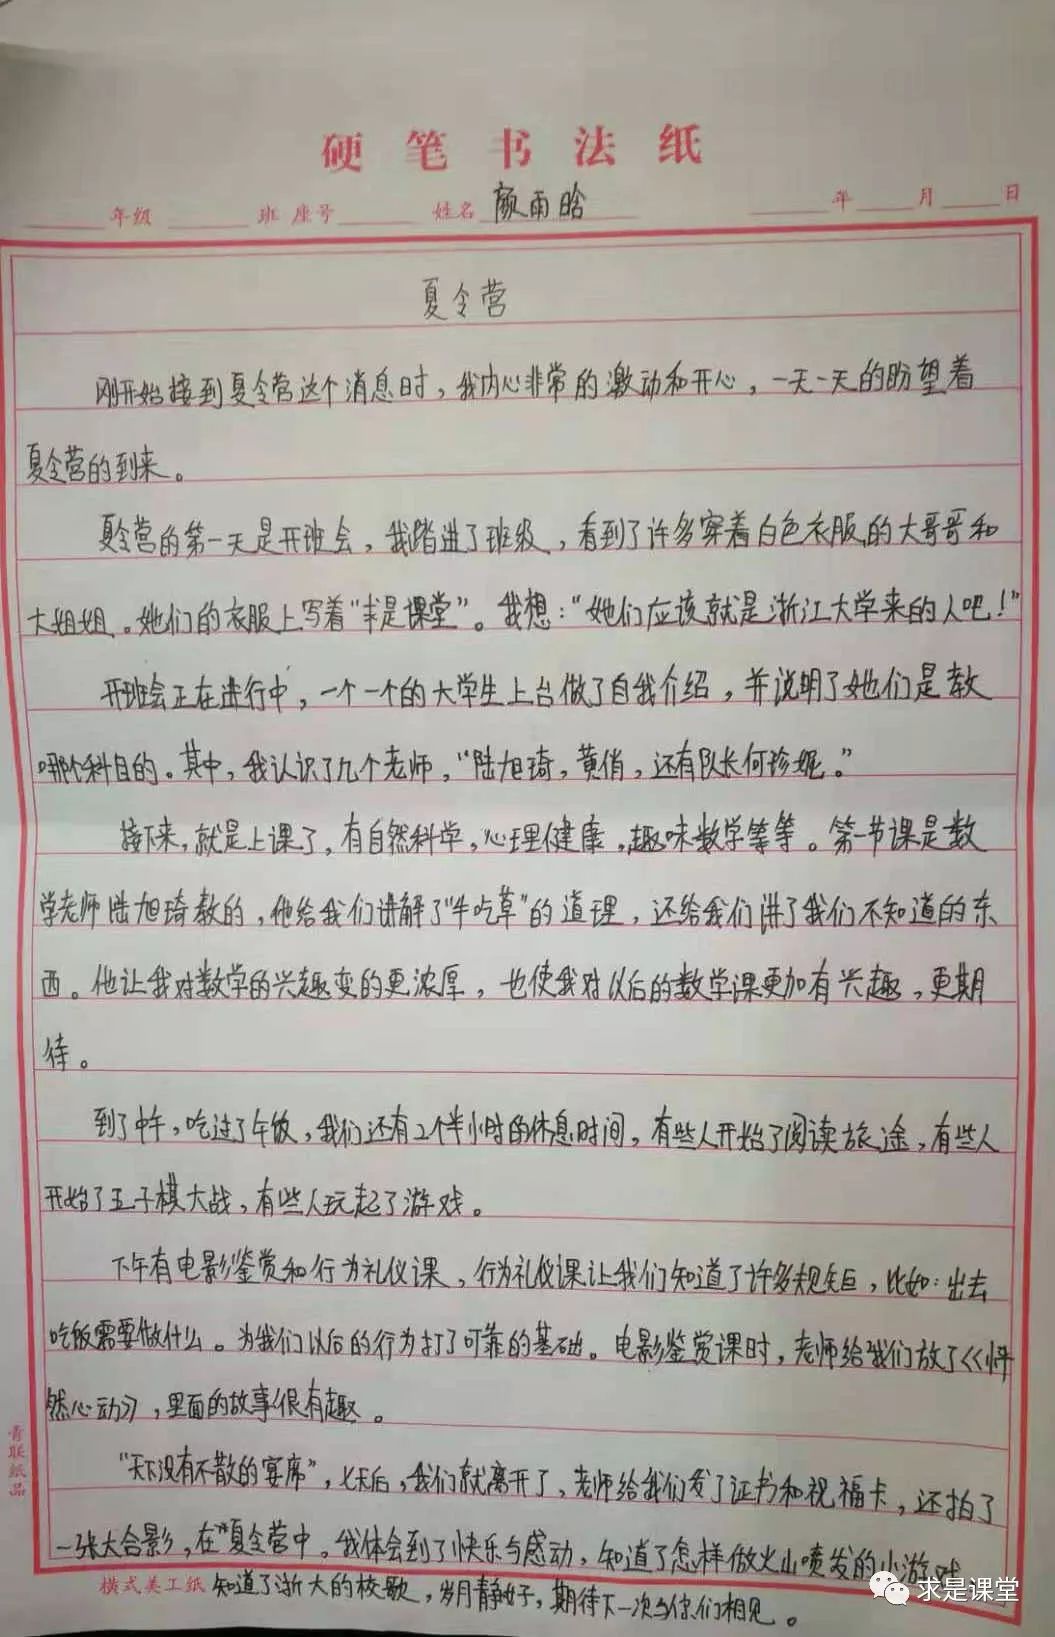 硬笔书法纸
年级 班 座号 姓名 颜雨晗 年 月 日
夏令营
刚开始接到夏令营这个消息时，我内心非常的激动和开心，一天一天的盼望着
夏令营的到来。
夏令营的第一天是开班会，我踏进了班级，看到了许多穿着白色衣服的大哥哥和
大姐姐。她们的衣服上写着“求是课堂”。我想：“她们应该就是浙江大学来的人吧！”
开班会正在进行中，一个一个的大学生上台做了自我介绍，并说明了她们是教
哪个科目的。其中，我认识了几个老师，“陆旭琦，黄俏，还有队长何珍妮。”
接下来，就是上课了，有自然科学，心理健康，趣味数学等等。第一节课是数
学老师陆旭琦教的，他给我们讲解了“牛吃草”的道理，还给我们讲了我们不知道的东
西。他让我对数学的兴趣变的更浓厚，也使我对以后的数学课更加有兴趣，更期
待。
到了中午，吃过了午饭，我们还有2个半小时的休息时间，有些人开始了阅读旅途，有些人
开始了五子棋大战，有些人玩起了游戏。
下午有电影鉴赏和行为礼仪课，行为礼仪课让我们知道了许多规矩，比如：出去
吃饭需要做什么。为我们以后的行为打了可靠的基础。电影鉴赏课时，老师给我们放了《怦
然心动》，里面的故事很有趣。
“天下没有不散的宴席”，七天后，我们就离开了，老师给我们发了证书和祝福卡，还拍了
一张大合影，在夏令营中。我体会到了快乐与感动，知道了怎样做火山喷发的小游戏
知道了浙大的校歌，岁月静好，期待下一次与你们相见。
横式美工纸
青联纸品
求是课堂